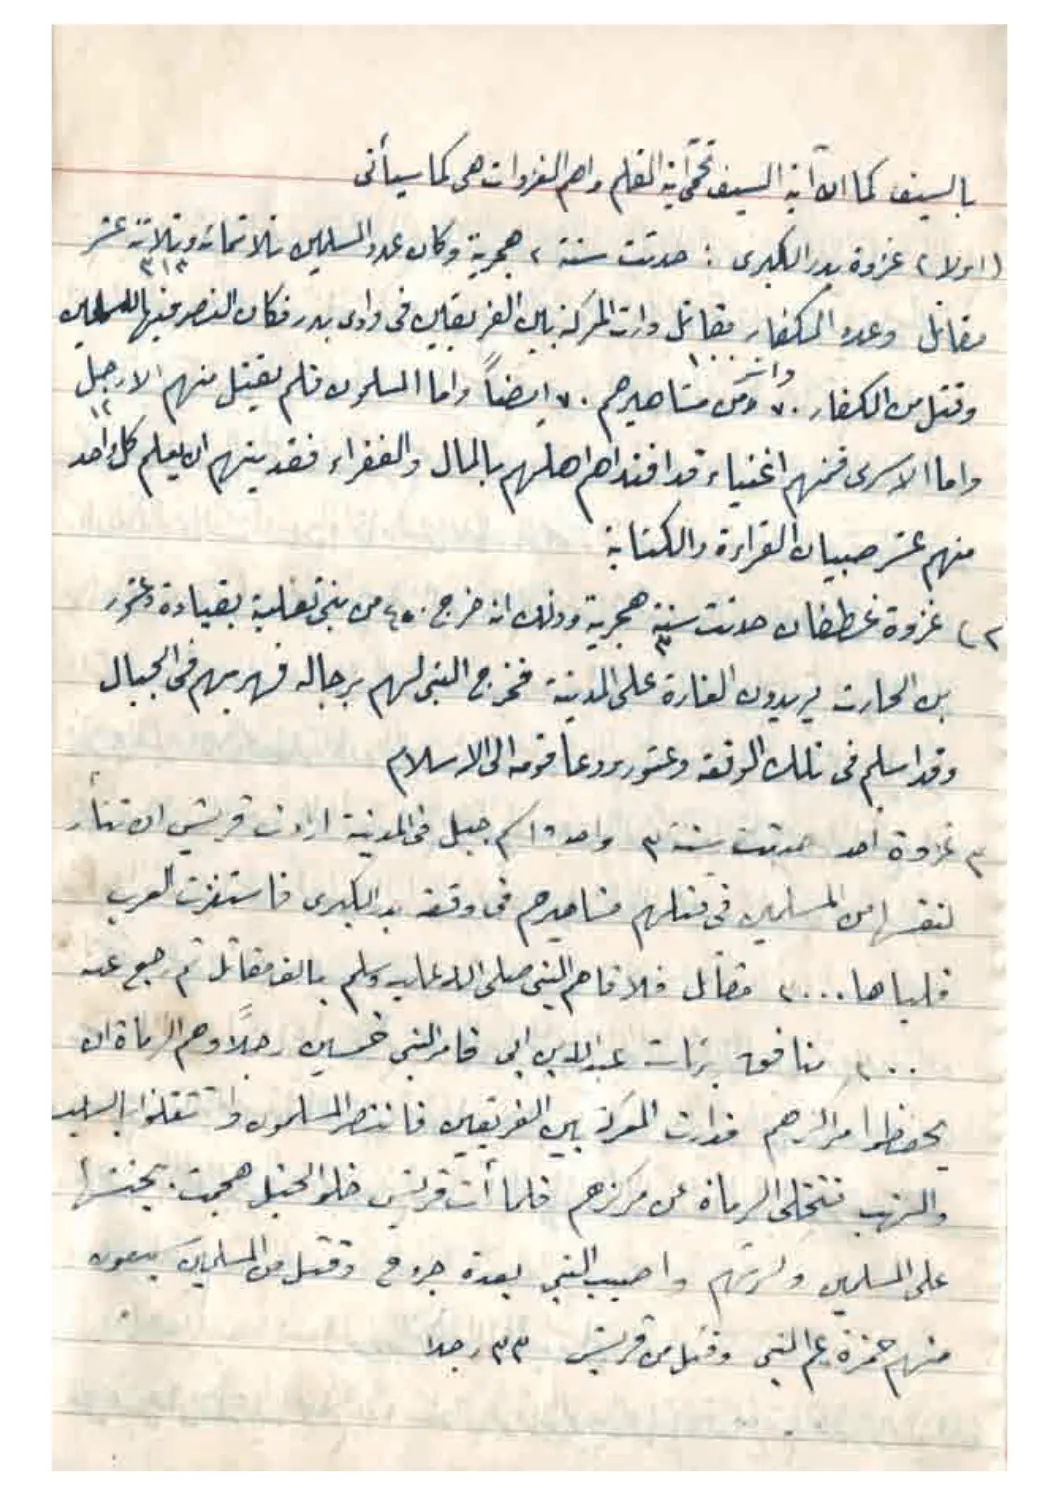 بالسيف كما ان آية السيف تحمى آية القلم واهم الغزوات هى كما سيأتى
(اولا) غزوة بدر الكبرى : حدثت سنة ٢ هجرية وكان عدد المسلمين ثلاثمائة وثلاثة عشر ٣١٣
مقاتل وعدد الكفار ١٠٠٠ مقاتل دارت المعركة بين الفريقين فى وادى بدر فكان النصر فيها للمسلمين
وقتل من الكفار ٧٠ واسر من مشاهيرهم ٧٠ ايضاً واما المسلمون فلم يقتل منهم الا ١٢ رجل
واما الاسرى فمنهم اغنياء قد افتداهم اهلهم بالمال والفقراء ففديتهم ان يعلم كل واحد
منهم عشر صبيان القراءة والكتابة
٢) غزوة غطفان حدثت سنة ٣ هجرية وذلك انه خرج ٤٥٠ من بنى ثعلبة بقيادة دعثور
بن الحارث يريدون الغارة على المدينة فخرج النبى لهم برجاله فهربهم فى الجبال
وقد اسلم فى تلك الوقعة دعثور ودعا قومه الى الاسلام
٣ غزوة أحد حدثت سنة ٣ واحد اسم جبل فى المدينة ارادت قريش ان تثأر
لنفسها من المسلمين فى قتلهم مشاهيرهم فى وقعة بدر الكبرى فاستفزت العرب
فلباها ٣٠٠٠ مقاتل فلاقاهم النبى صلى الله عليه وسلم بالف مقاتل ثم رجع عنه
٣٠٠ منافق عبد الله بن ابى فامر النبى خمسين رجلاً وهم الرماة ان
يحفظوا مراكزهم فدارت المعركة بين الفريقين فانتصر المسلمون واشتغلوا بالسلب
والنهب فتخلى الرماة عن مركزهم فلما رأت قريش خلو الجبل هجمت بجيشها
على المسلمين واصيب النبى بعدة جروح وقتل من المسلمين سبعون
منهم حمزة عم النبى وقتل من قريش ٣٣ رجلا